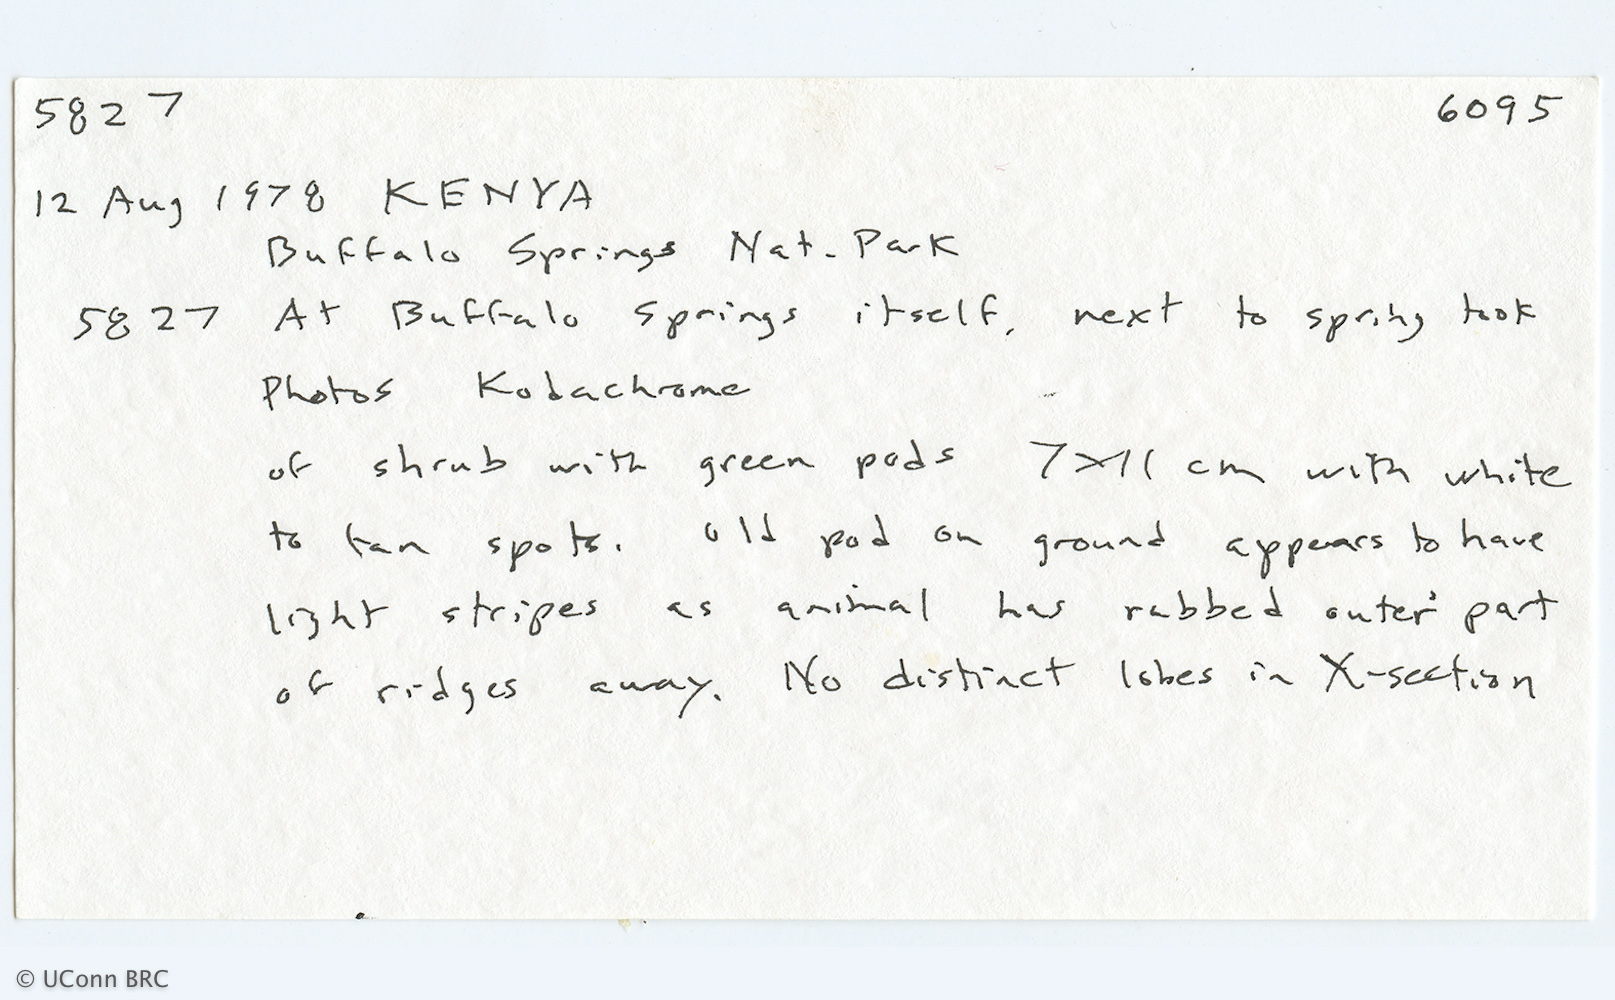 5827 6095
12 Aug 1978 KENYA
Buffalo Springs Nat. Park
5827 At Buffalo Springs itself, next to spring took
Photos Kodachrome
of shrub with green pods 7x11 cm with white
to tan spots. old pod on ground appears to have
light stripes as animal has rubbed outer part
of ridges away. No distinct lobes in X-section
© UConn BRC